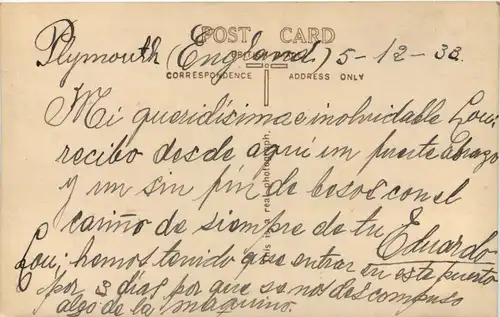 POST CARD
Plymouth (England) 5-12-33.
CORRESPONDENCE ADDRESS ONLY
Mi queridísima e inolvidable Lou:
recibo desde aqui un fuerte abrazo
y un sin fin de besos con el
cariño de siempre de tu Eduardo
Lou; hemos tenido que entrar en este puerto
por 3 días por que se nos descompuso
algo de la maquina.
This is a real photograph.